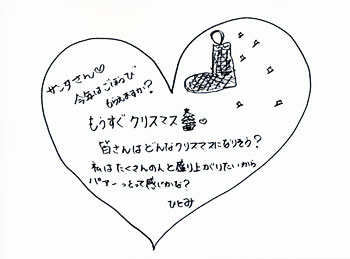 サンタさん♡
今年はごほうび
もらえますか?
もうすぐクリスマス
皆さんはどんなクリスマスになりそう?
私はたくさんの人と盛り上がりたいから
パァーっとって感じかな?
ひとみ